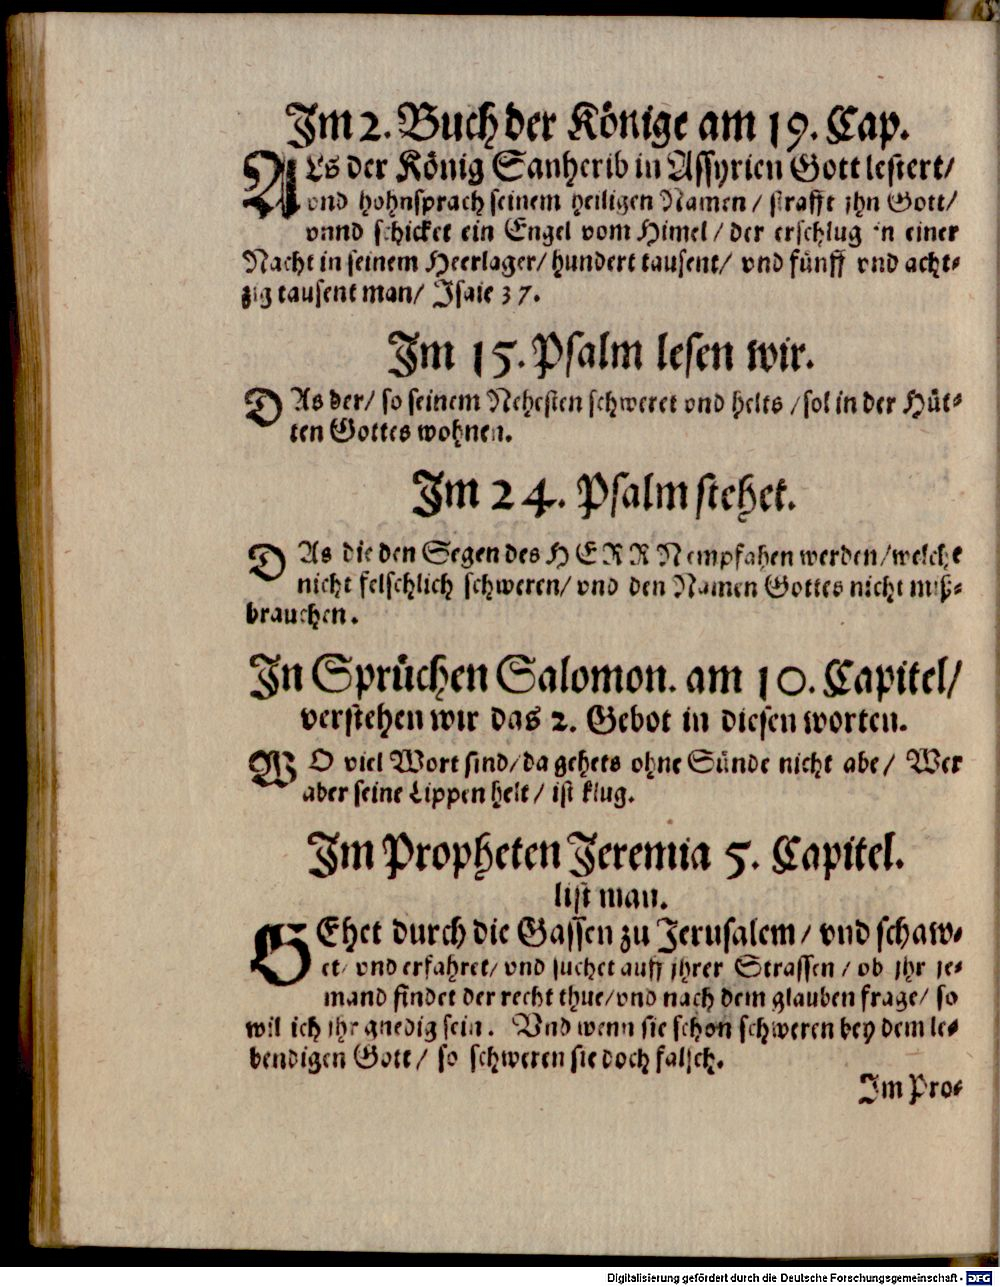 Im 2. Buch der Könige am 19. Cap.
ALs der König Sanherib in Assyrien Gott lestert/
vnd hohnsprach seinem heiligen Namen / strafft jhn Gott/
vnnd schicket ein Engel vom Himel / der erschlug in einer
Nacht in seinem Heerlager/ hundert tausent/ vnd fünff vnd acht⸗
zig tausent man/ Isaie 37.
Im 15. Psalm lesen wir.
DAs der/ so seinem Nehesten schweret vnd helts / sol in der Hüt⸗
ten Gottes wohnen.
Im 24. Psalm stehet.
DAs die den Segen des HERRN empfahen werden/ welche
nicht felschlich schweren/ vnd den Namen Gottes nicht miß⸗
brauchen.
In Sprüchen Salomon. am 10. Capitel/
verstehen wir das 2. Gebot in diesen worten.
WO viel Wort sind/ da gehets ohne Sünde nicht abe/ Wer
aber seine Lippen helt/ ist klug.
Im Propheten Jeremia 5. Capitel.
list man.
GEhet durch die Gassen zu Jerusalem/ vnd schaw⸗
et/ vnd erfahret/ vnd suchet auff jhrer Strassen / ob jhr je⸗
mand findet der recht thue/ vnd nach dem glauben frage/ so
wil ich jhr gnedig sein. Vnd wenn sie schon schweren bey dem le⸗
bendigen Gott/ so schweren sie doch falsch.
Im Pro⸗
Digitalisierung gefördert durch die Deutsche Forschungsgemeinschaft - DFG